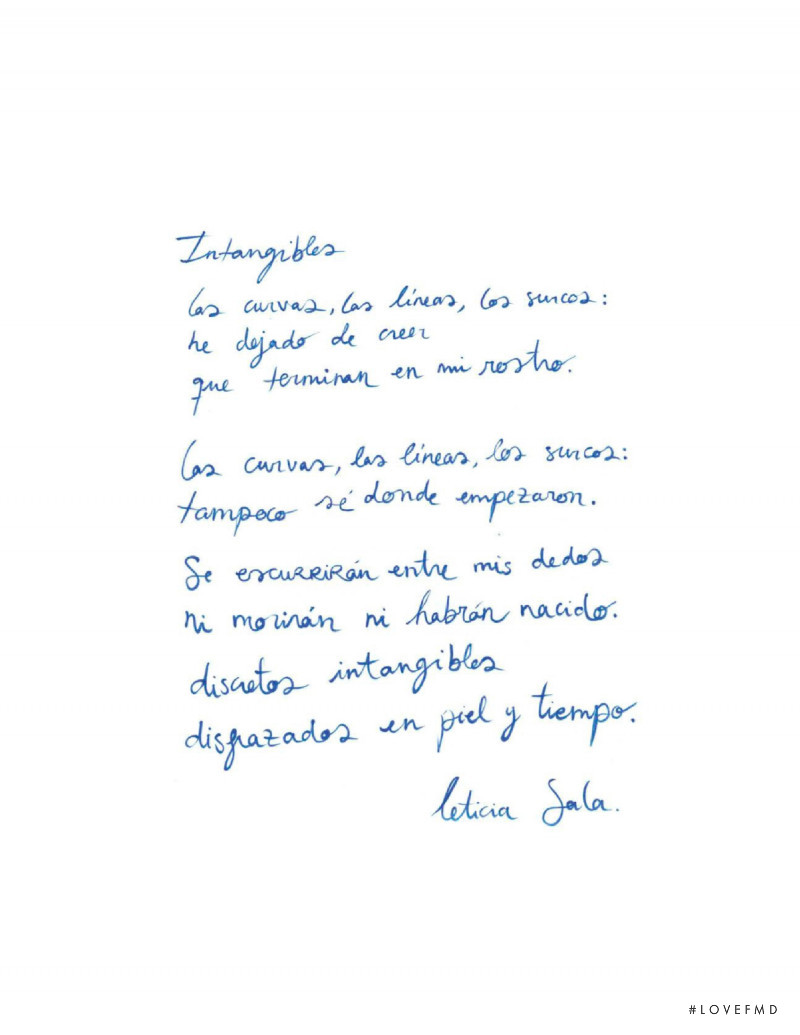 Intangibles
Las curvas, las líneas, los surcos:
he dejado de creer
que terminan en mi rostro.
Las curvas, las líneas, los surcos:
tampoco sé donde empezaron.
Se escurrirán entre mis dedos
ni morirán ni habrán nacido.
discretos intangibles
disfrazados en piel y tiempo.
Leticia Sala.
#LOVEFMD